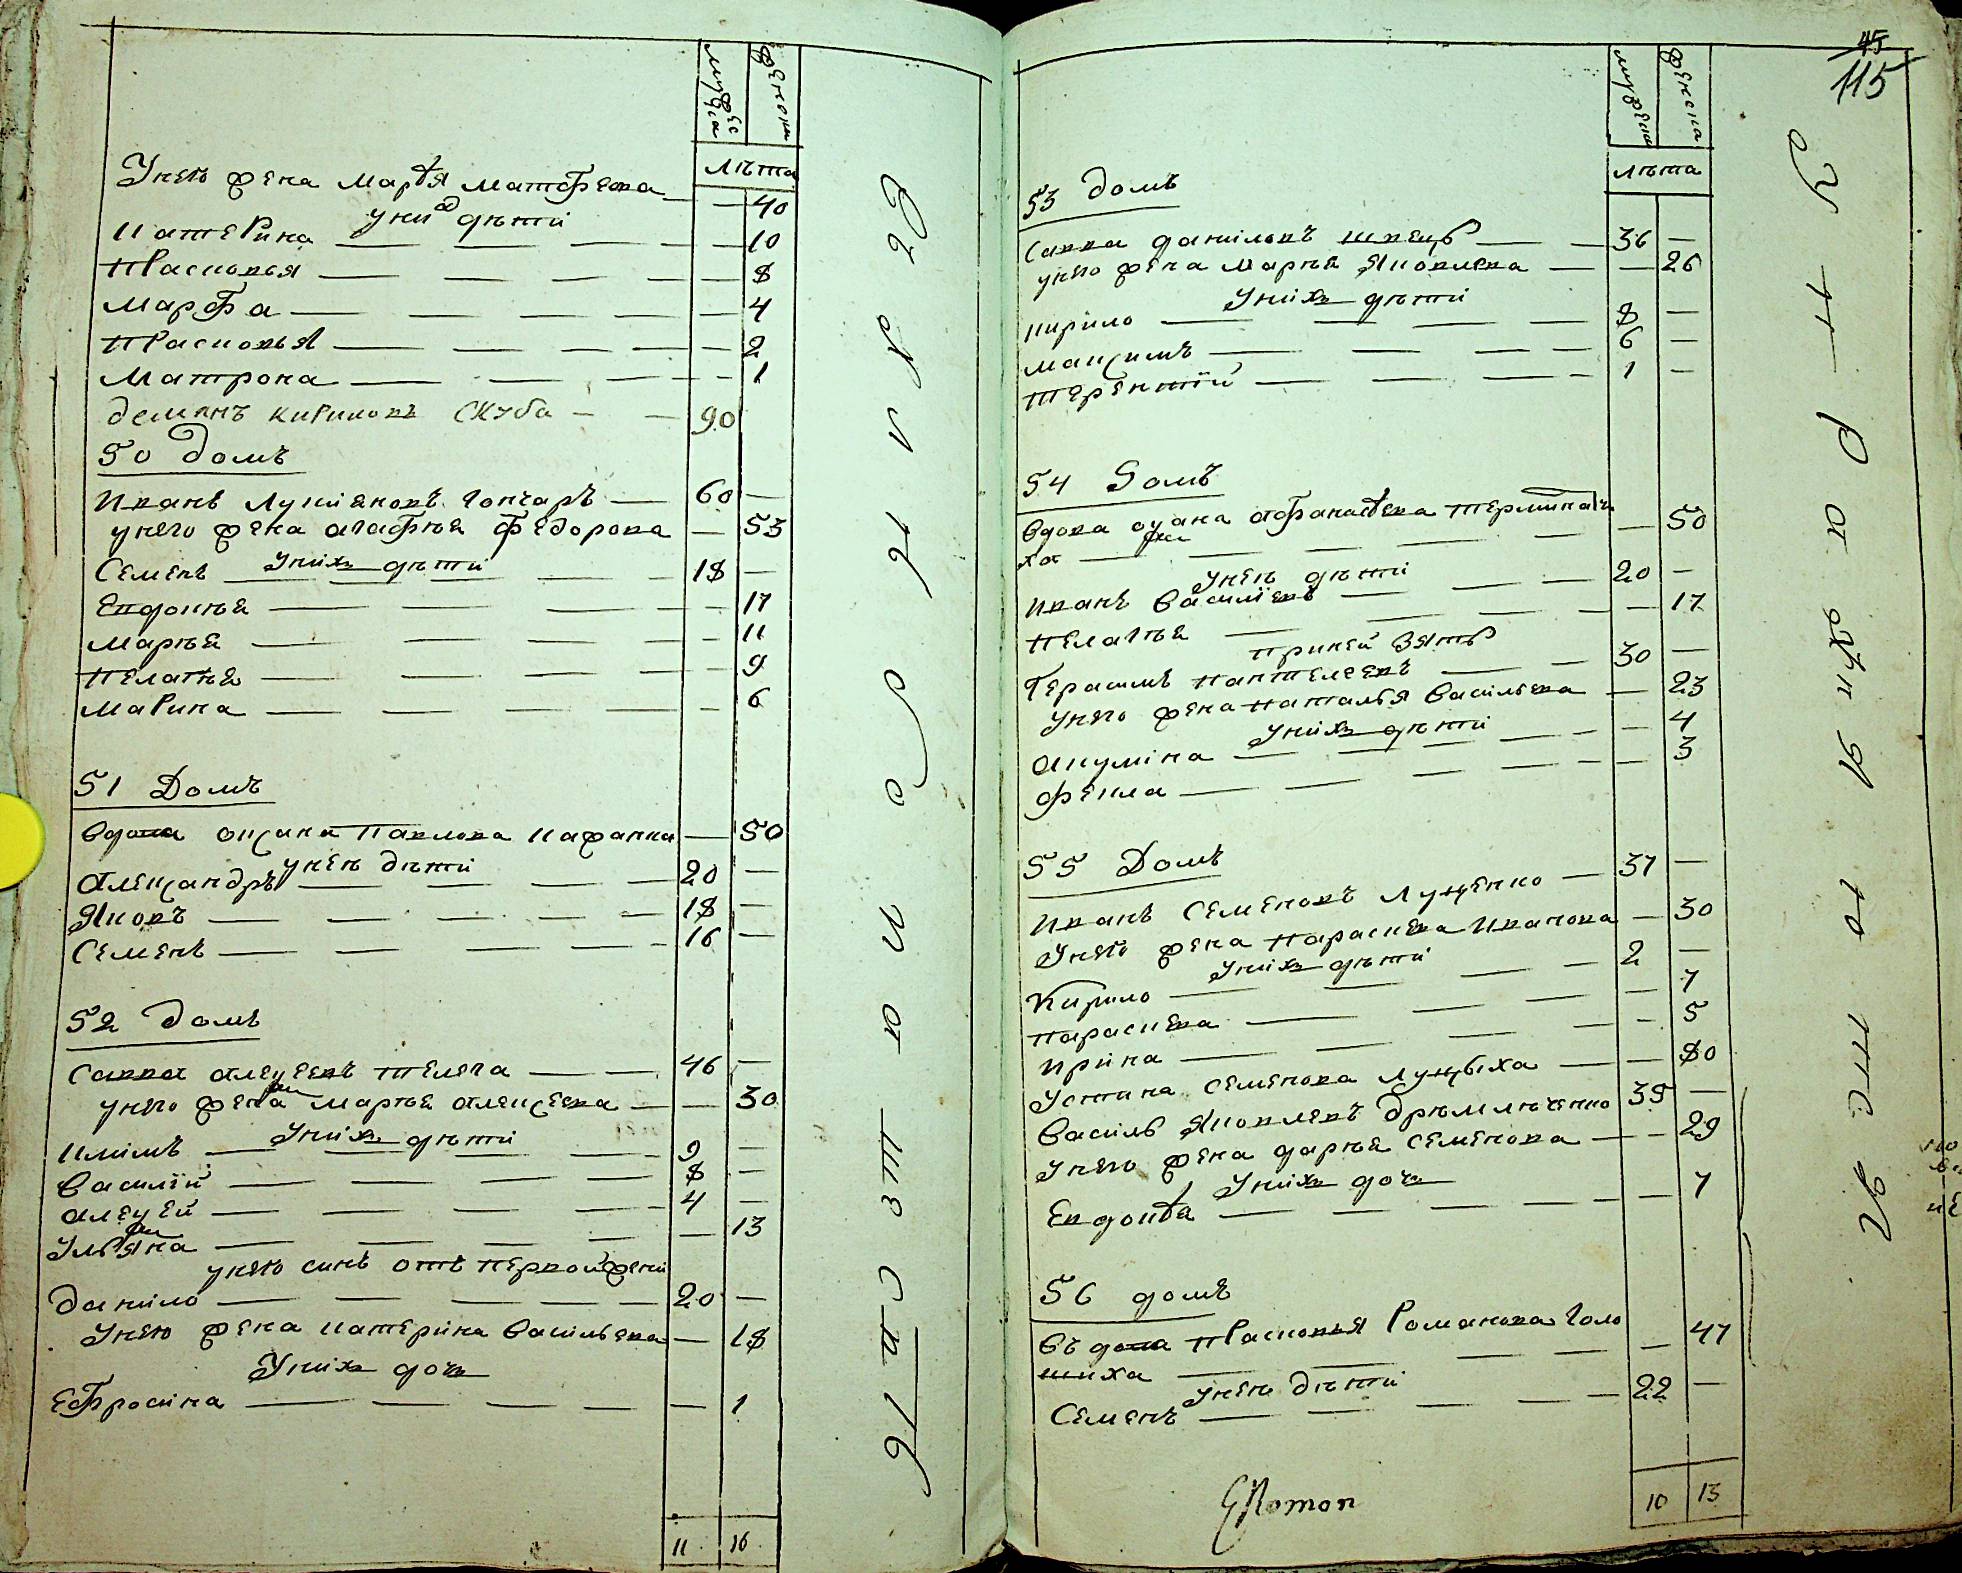 мужеска женска
лѣта
Унего жена Марфя Матфеева — 40
уних дѣти
Катерина — 10
Прасковья — 8
Марфа — 4
Прасковья — 2
Матрона — 1
демянъ кириловъ Скуба — 90
50 домъ
Иванъ Лукіяновъ Гончаръ — 60 —
унего жена Агафья Федорова — 53
Уних дѣти
Семенъ — 18 —
Евдокия — 17
Марья — 11
Пелагея — 9
Марина — 6
51 Домъ
вдова Оксана Павлова — 50
унеи дѣти
Александръ — 20 —
Яковъ — 18 —
Семенъ — 16 —
52 домъ
Савва Алеѯеевъ Телега — 46 —
унего жена Марья Алексеева — 30
Уних дѣти
Климъ — 9 —
Василій — 8 —
Алеѯей — 4 —
Ульяна — 13
унего синъ отъ первой жени
Данило — 20 —
Унего жена Катерина Васильева — 18
Уних доч
Ефросина — 1
11 16
45
115
мужеска женска
лѣта
53 домъ
Савва Даниловъ Швець — 36 —
унего жена Марья Яковлева — 26
Уних дѣти
Кирило — 8 —
Максимъ — 6 —
Терентій — 1 —
54 Домъ
Вдова Афанасьева — 50
ха
Унеи дѣти
Иванъ Василіевъ — 20 —
Пелагея — 17
Приней зять
Герасимъ Пантелеевъ — 30 —
Унего жена Наталья Васильева — 23
Уних дѣти
Акулина — 4
Фекла — 3
55 Домъ
Иванъ Семеновъ Луценко — 37 —
Унего жена Параскева Иванова — 30
Уних дѣти
Кирило — 2 —
Параскева — 7
Ирина — 5
Устина Семенова Луцыха — 80
Василь Яковлевъ Дрѣмлюченко — 35 —
Унего жена Дарья Семенова — 29
Уних доч
Евдокия — 7
56 домъ
Въдова Прасковья Романова Голо — 47
шиха
унеи дѣти
Семенъ — 22 —
10 13